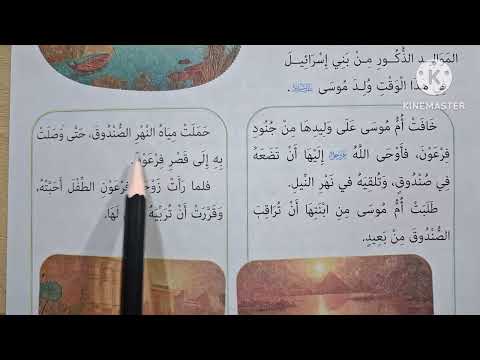 المَوَالِيدِ الذُّكُورِ مِنْ بَنِي إِسْرَائِيلَ
هَذَا الْوَقْتِ وُلِدَ مُوسَى .
خَافَتْ أُمُّ مُوسَى عَلَى وَلِيدِهَا مِنْ جُنُودِ
فِرْعَوْنَ، فَأَوْحَى اللَّهُ إِلَيْهَا أَنْ تَضَعَهُ
فِي صُنْدُوقٍ، وَتُلْقِيَهُ فِي نَهْرِ النِّيلِ.
طَلَبَتْ أُمُّ مُوسَى مِنِ ابْنَتِهَا أَنْ تُرَاقِبَ
الصُّنْدُوقَ مِنْ بَعِيدٍ.
حَمَلَتْ مِيَاهُ النَّهْرِ الصُّنْدُوقَ، حَتَّى وَصَلَتْ
بِهِ إِلَى قَصْرِ فِرْعَوْنَ.
فلما رَأَتْ فِرْعَوْنَ الطِّفْلَ أَحَبَّتْهُ،
وَقَرَّرَتْ أَنْ تُرَبِّيَهُ لَهَا.
KINEMASTER